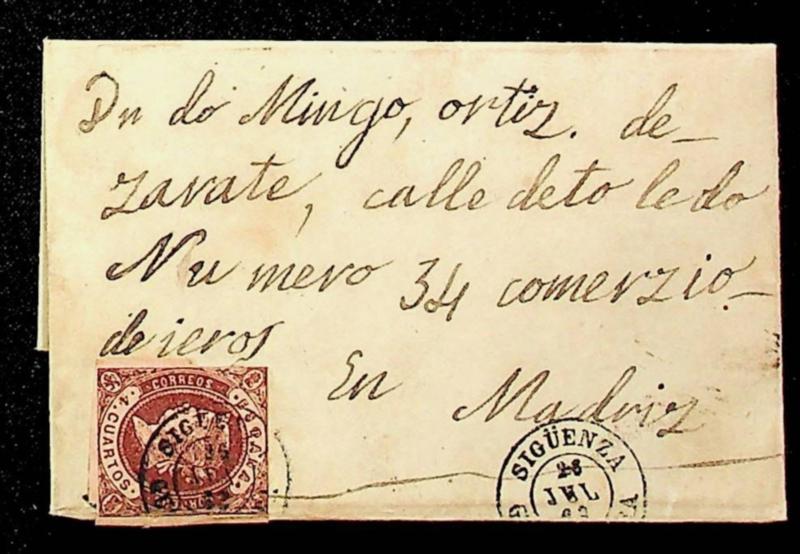 Dn do Mingo, ortiz. de_
zarate, calle deto ledo
Nu mero 34 comerzio_
de ieros
En Madriz
CORREOS
4 CUARTOS
ESPAÑA
SIGÜENZA
28
JUL